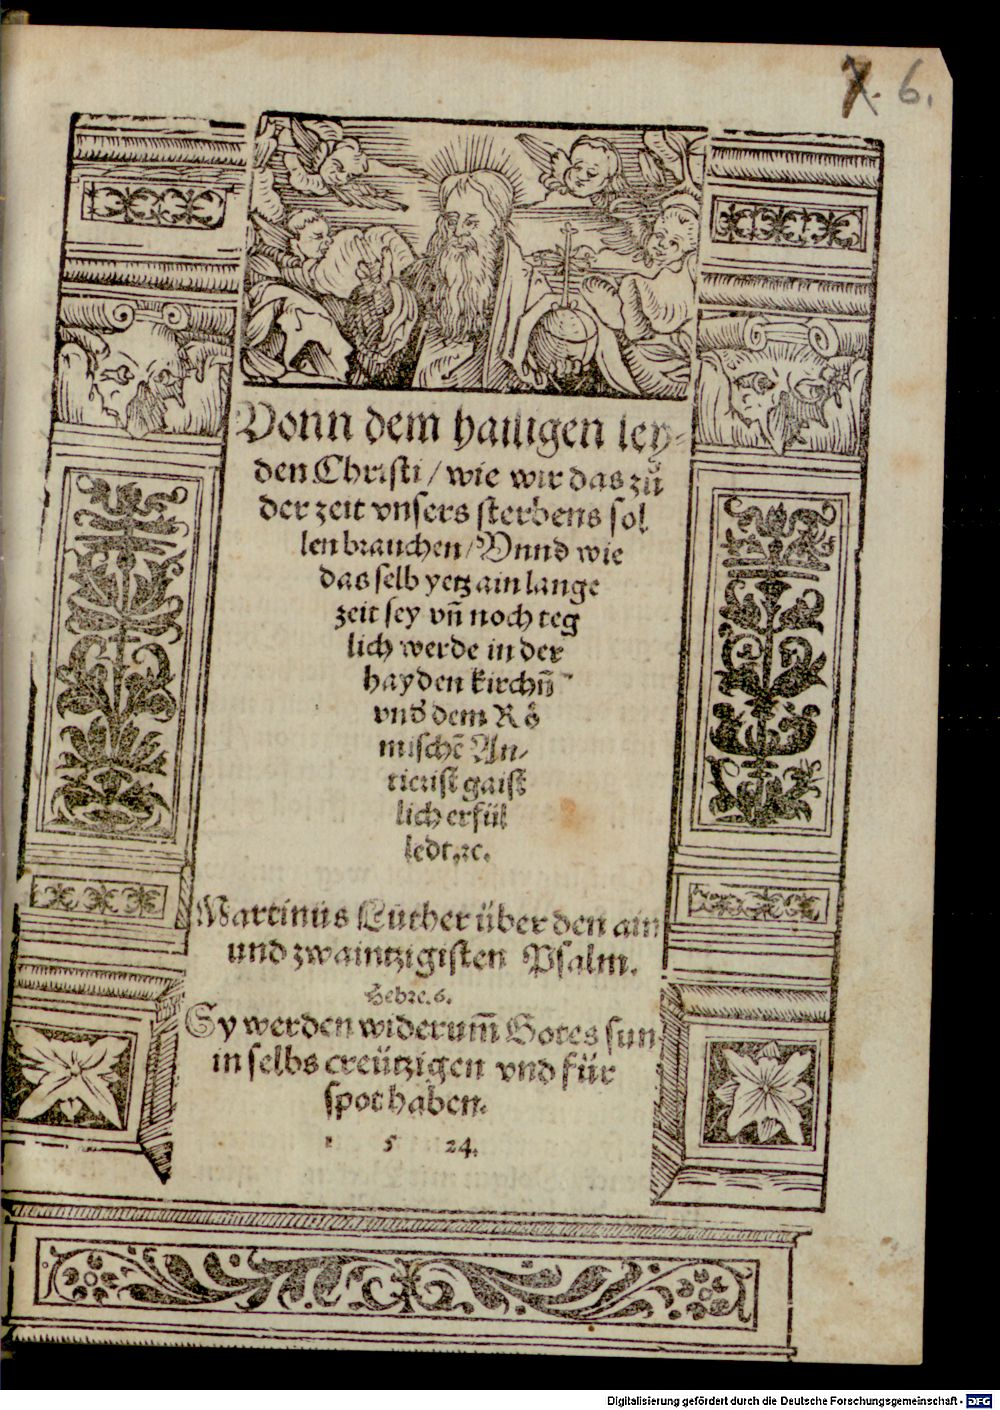 7. 6.
Vonn dem hailigen ley⸗
den Christi / wie wir das zů
der zeit vnsers sterbens sol
len brauchen / Vnnd wie
das selb yetz ain lange
zeit sey vn̄ noch teg
lich werde in der
hayden kirchn̄
vnd dem Rö
mischē An⸗
ticrist gaist
lich erfül
ledt. ꝛc.
Martinus Luther über den ain
und zwaintzigisten Psalm.
Hebre. 6.
Sy werden widerum̄ Gotes sun
in selbs creützigen vnd für
spot haben.
1 5 24.
Digitalisierung gefördert durch die Deutsche Forschungsgemeinschaft - DFG